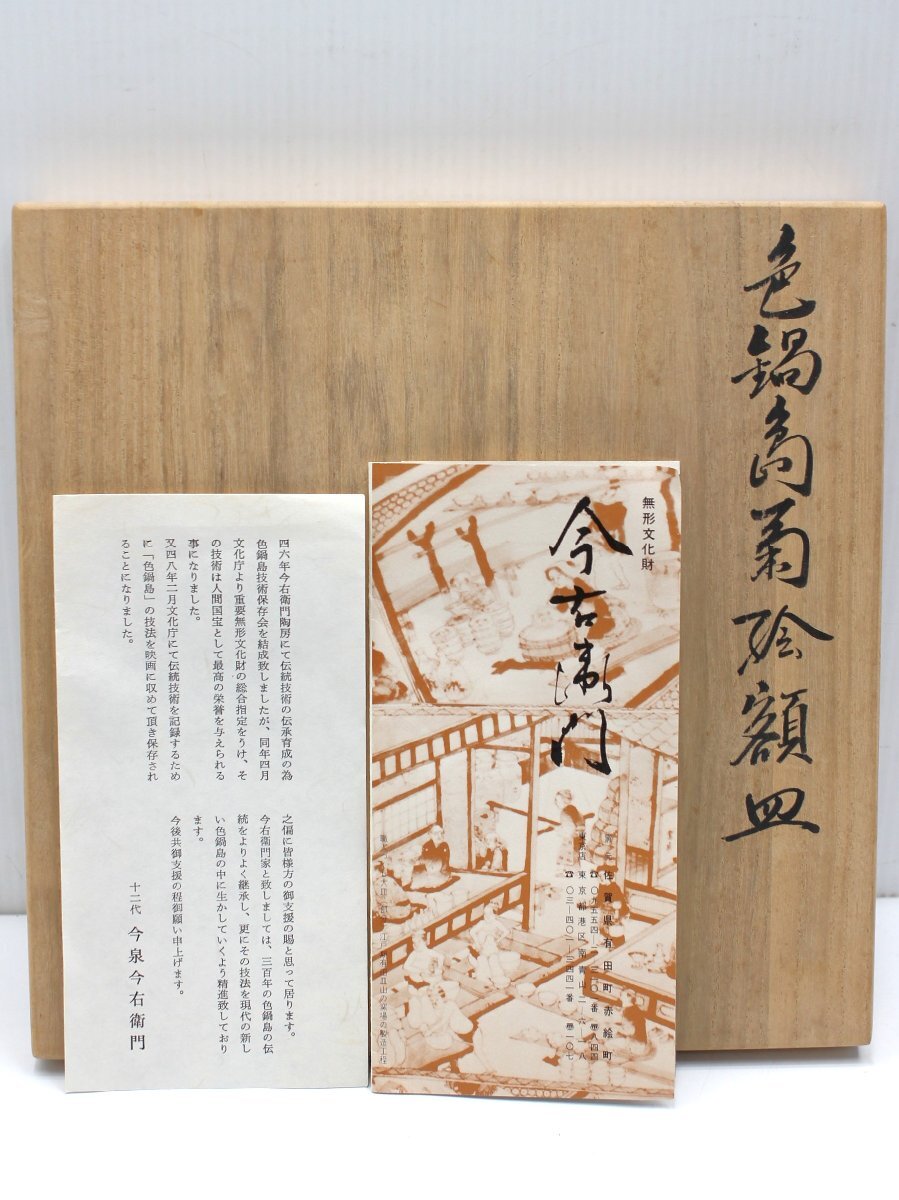 色鍋島菊絵額皿
無形文化財
今右衛門
窯元 佐賀県有田町赤絵町
東京店 東京都港区南青山二-六-一八
四六年今右衛門陶房にて伝統技術の伝承育成の為
色鍋島技術保存会を結成致しましたが、同年四月
文化庁より重要無形文化財の総合指定をうけ、そ
の技術は人間国宝として最高の栄誉を与えられる
事になりました。
又四八年二月文化庁にて伝統技術を記録するため
に「色鍋島」の技法を映画に収めて頂き保存され
ることになりました。
之偏に皆様方の御支援の賜と思って居ります。
今右衛門家と致しましては、三百年の色鍋島の伝
統をよりよく継承し、更にその技法を現代の新し
い色鍋島の中に生かしていくよう精進致しており
ます。
今後共御支援の程御願い申上げます。
十二代 今泉今右衛門